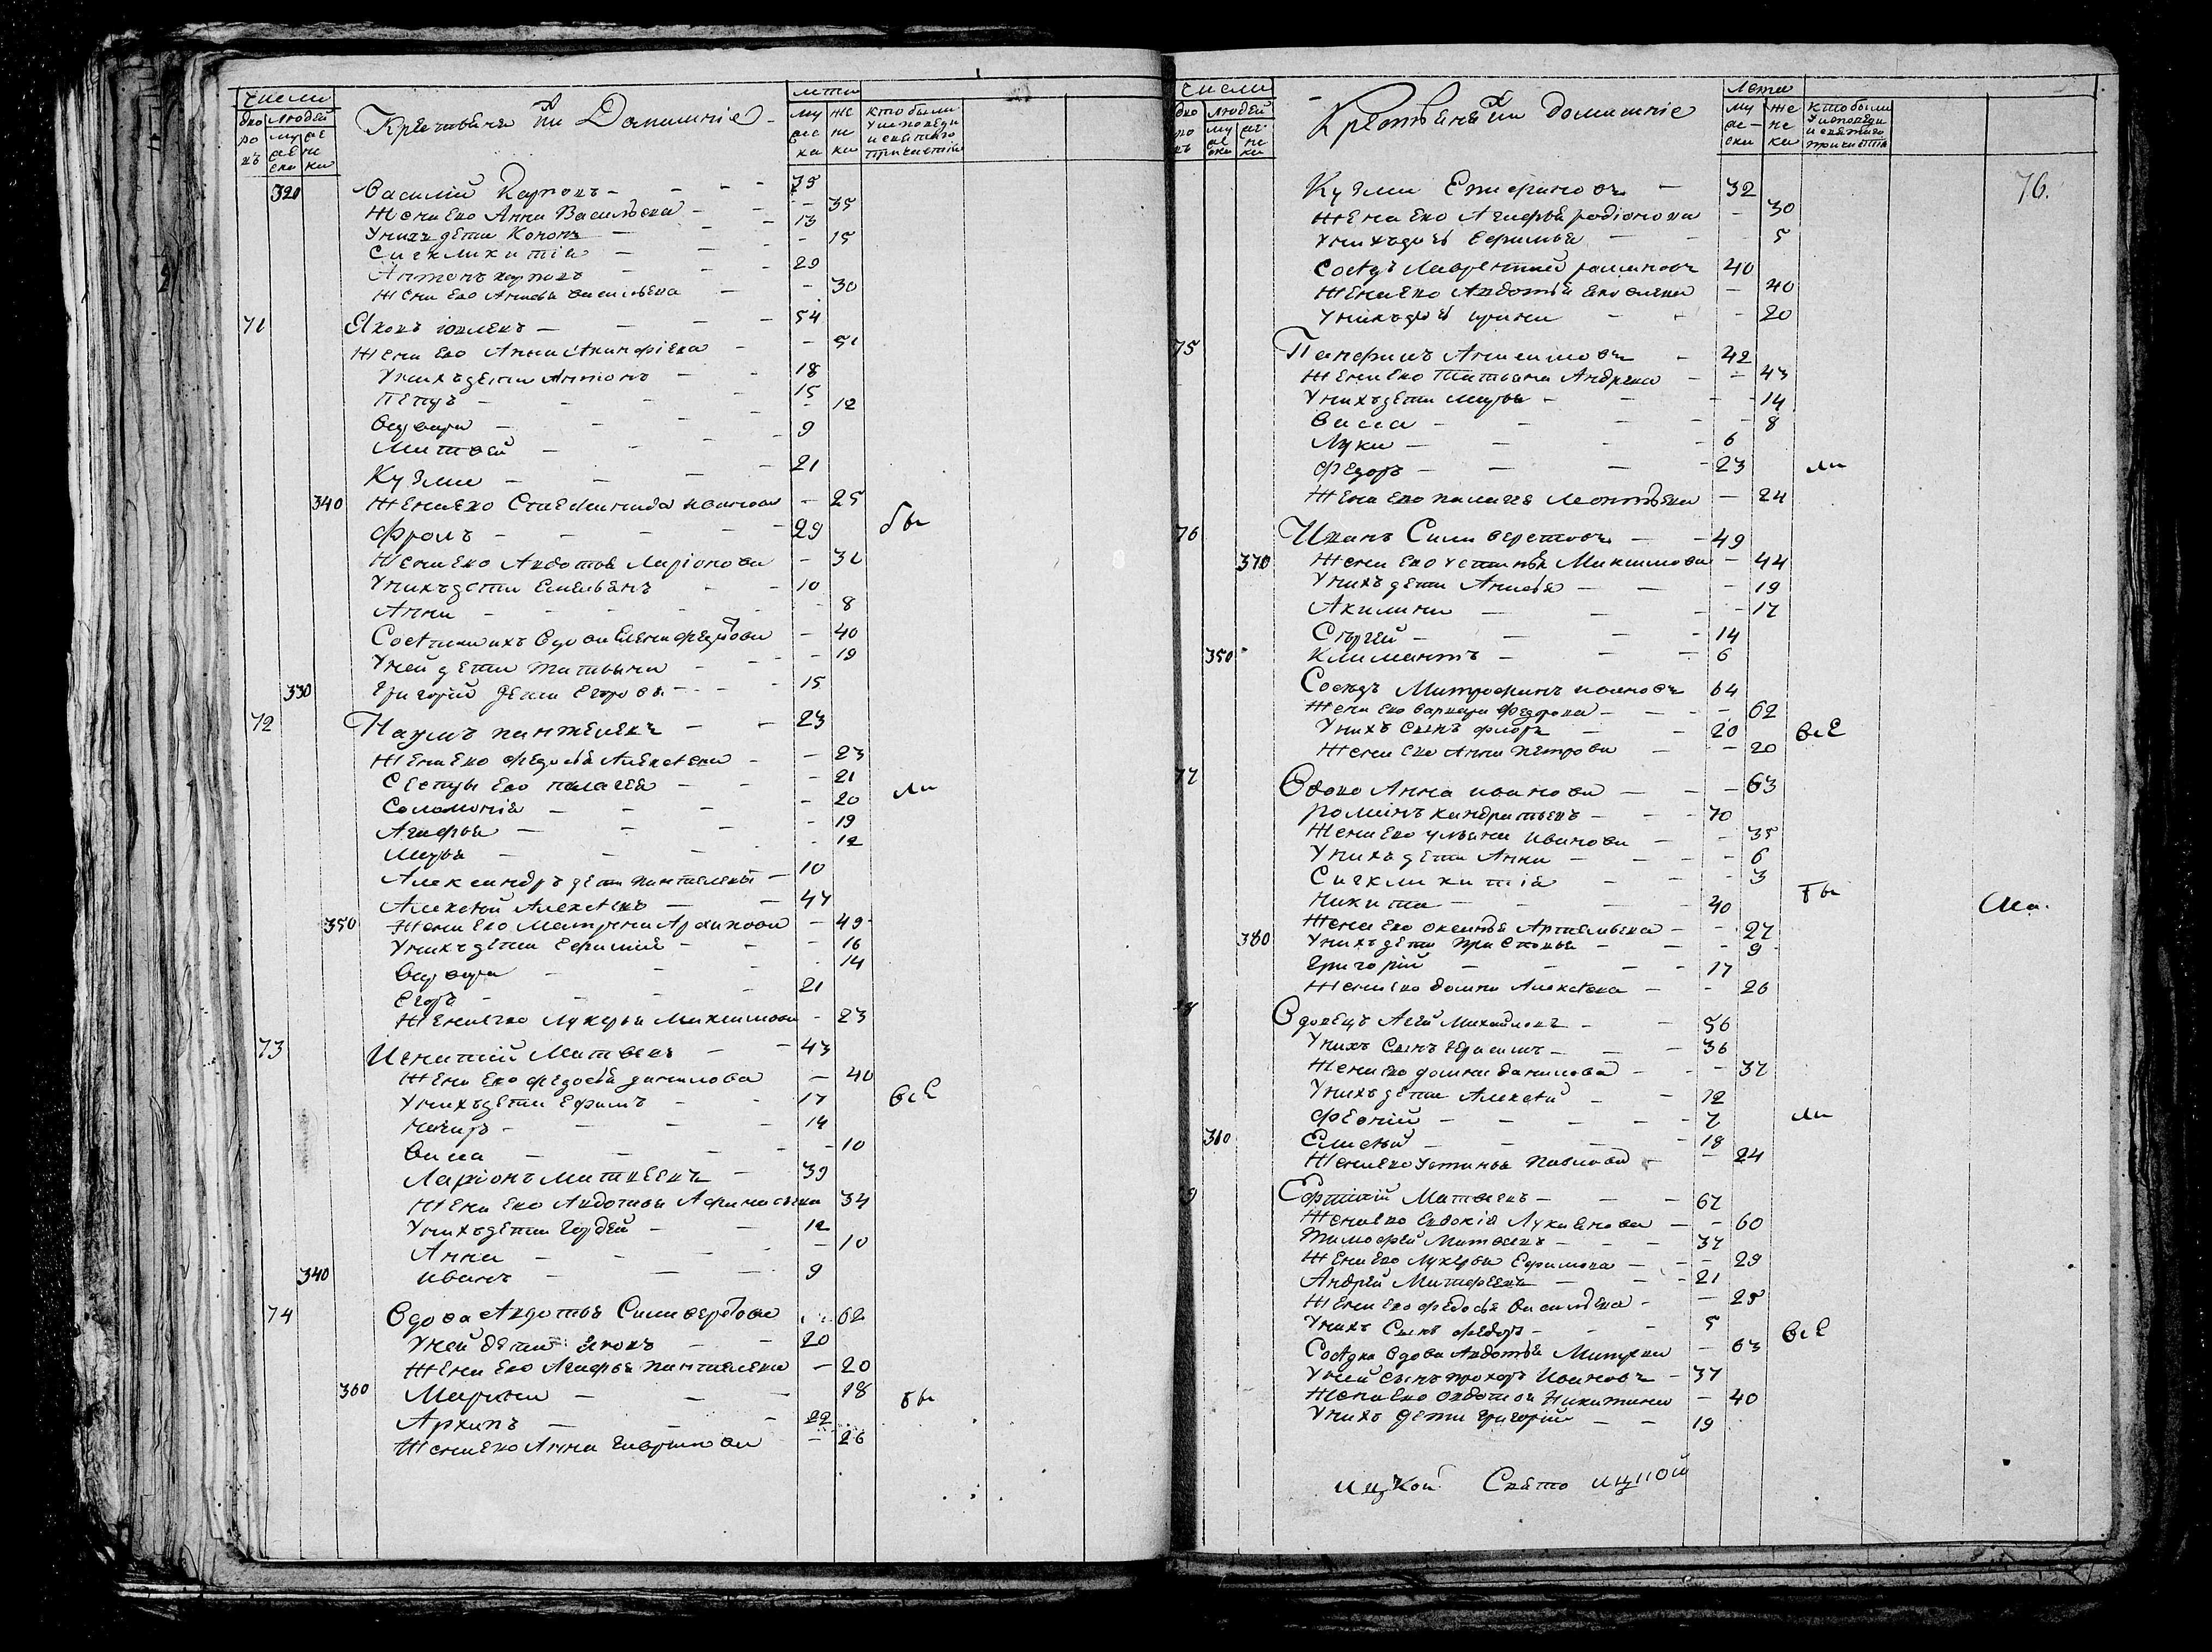 числа
дво ро въ
людей
муже ска
же нска
Крестьяня и их Домашніе
лета
му жеска
же нска
кто были у исповеди и святаго причастія
320 Василий Карповъ - 35
Жена Ево Анна Васильева - 35
У нихъ дети Кононъ - 13
Сигклихитіа - 15
Антонъ Карповъ - 29
Жена Ево Анисья васильева - 30
71 Яковъ іовлевъ - 54
Жена Ево Анна Акинфіева - 51
У нихъ дети Антонъ - 18
Петръ - 15
Варвара - 12
Матвей - 9
Кузма - 21
340 Жена Ево Степанида иванова - 25
Фролъ - 29 бы
Жена Ево Авдотья Ларіонова - 31
У нихъ дети Емельянъ - 10
Анна - 8
Соседка ихъ Вдова Елена федотова - 40
У ней дети татьяна - 19
330 Григорій дети Егоровы - 15
72 Наумъ пантелевъ - 23
Жена Ево федосья Алексеева - 23
Сестры Ево палагея - 21 ли
Соломоніа - 20
Агафья - 19
Марья - 12
Александръ дети пантелевы - 10
Алексей Алексеевъ - 47
350 Жена Ево Матрена Архипова - 49
У нихъ дети Ефиміа - 16
Варвара - 14
Егоръ - 21
Жена Ево Лукерья Максимова - 23
73 Игнатий Матвеевъ - 43
Жена Ево федосья данилова - 40
У нихъ дети Ефимъ - 17 всЕ
- 14
Васса - 10
Ларіонъ Матвеевъ - 39
Жена Ево Авдотья Афанасьева 34
У нихъ дети Гордей - 12
Анна - 10
340 иванъ - 9
74 Вдова Авдотья Силиверстова 62
У ней дети яковъ - 20
Жена Ево Агафья пантелева - 20
360 Марина - 18 бы
Архипъ - 22
Жена Ево Анна Гаврилова - 26
числа
дво ро въ
людей
му же ска
же нска
Крестьяня и их домашніе
Лета
му же ска
же нска
кто были у исповеди и святаго причастія
76.
Кузма - 32
Жена Ево Агафья родіонова - 30
У нихъ дочь Ефимья - 5
Соседъ Лаврентий романовъ 40
Жена Ево Авдотья - 40
У нихъ дочь ирина - 20
75 Панфилъ Анисимовъ - 42
Жена Ево Татьяна Андреева - 43
У нихъ дети марья - 14
Васса - 8
Лука - 6
Федоръ - 23 ли
Жена Ево палагея Леонтьева - 24
76 Иванъ Силиверстовъ - 49
370 Жена Ево устинья Максимова - 44
У нихъ дети Анисья - 19
Акилина - 17
Сергей - 14
350 Климантъ - 6
Соседъ Митрофанъ ивановъ 64
Жена Ево варвара федорова - 62
У нихъ Сынъ флоръ - 20 всЕ
Жена Ево Анна петрова - 20
77 Вдова Анна иванова - 63
романъ кандратьевъ - 70
Жена Ево ульяна иванова - 35
У нихъ дети Анна - 6
Сигклихитіа - 3
никита - 40 бы
Жена Ево оксинья Артемьева - 27
380 У нихъ дети Прасковья - 9
Григорій - 17
Жена Ево домна Алексеева - 26
78 Вдовецъ Агей Михайловъ - 56
У нихъ Сынъ герасимъ - 36
Жена Ево домна данилова - 37
У нихъ дети Алексей - 12
Федній - 7 ли
310 Елисей - 18
Жена Ево Устинья Павлова - 24
9 Матвеевъ - 62
Жена Ево Евдокіа Лукианова - 60
тимофей Матвеевъ - 37
Жена Ево Лукерья Ефимова - 29
Андрей Матфеевъ - 21
Жена Ево федосья васильева - 25
У нихъ Сынъ федоръ - 5
Соседка Вдова Авдотья - 63 всЕ
У ней сынъ прохоръ Ивановъ - 37
Жена Ево овдотья Никитина - 40
У нихъ дети григорий - 19